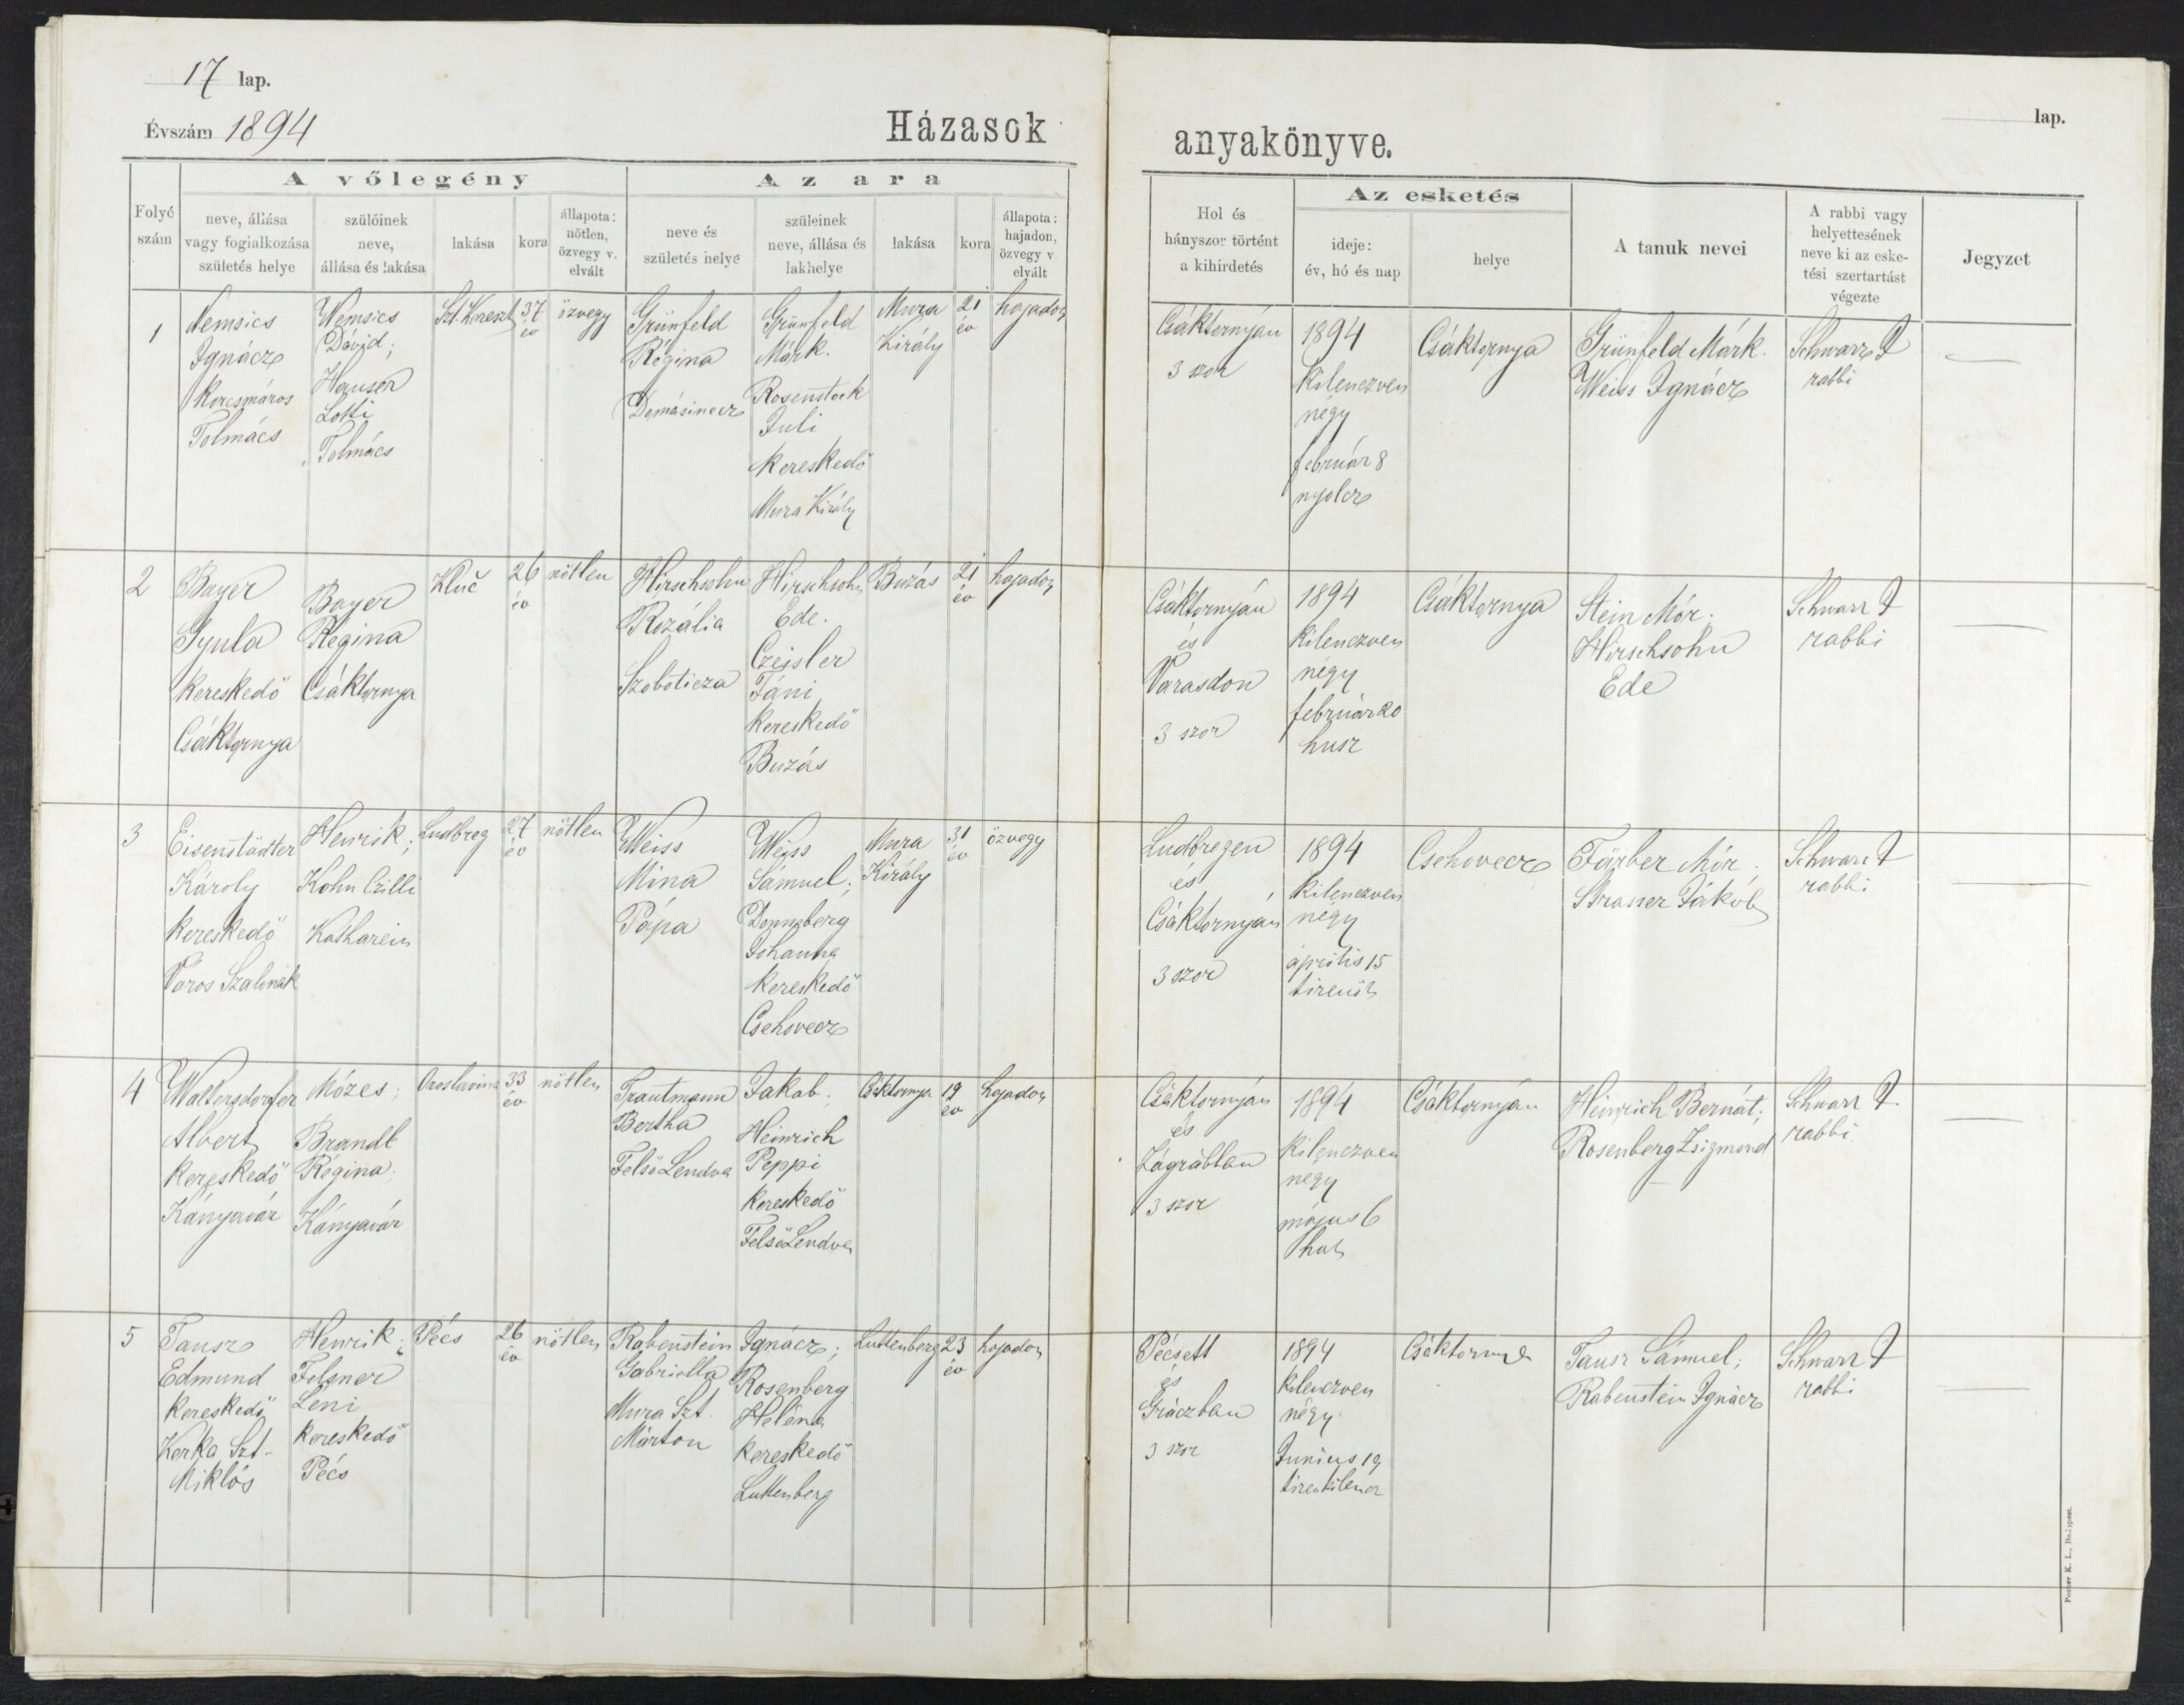 17 lap.
Évszám 1894
Házasok
anyakönyve.
lap.
A vőlegény
Az ara
Az esketés
Folyó szám
neve, állása vagy foglalkozása születés helye
szülőinek neve, állása és lakása
lakása
kora
állapota: nőtlen, özvegy v. elvált
neve és születés helye
szüleinek neve, állása és lakhelye
lakása
kora
állapota: hajadon, özvegy v. elvált
Hol és hányszor történt a kihirdetés
ideje: év, hó és nap
helye
A tanuk nevei
A rabbi vagy helyettesének neve ki az esketési szertartást végezte
Jegyzet
1
Nemsics
Ignácz
Korcsmáros
Tolmács
Nemsics
Dávid;
Hauser
Lotti
Tolmács
Szt. Kereszt
37
év
özvegy
Grünfeld
Régina
Domásinecz
Grünfeld
Márk.
Rosenstock
Juli
kereskedő
Mura Király
Mura
Király
21
év
hajadon
Csáktornyán
3 szor
1894
Kilenczven
négy
február 8
nyolcz
Csáktornya
Grünfeld Márk.
Weiss Ignácz
Schwarz J
rabbi
2
Bayer
Gyula
kereskedő
Csáktornya
Bayer
Regina
Csáktornya
Kluč
26
év
nőtlen
Hirschsohn
Rozália
Szoboticza
Hirschsohn
Ede.
Czeisler
Fáni
kereskedő
Buzás
Buzás
21
év
hajadon
Csáktornyán
és
Varasdon
3 szor
1894
kilenczven
négy
február 20
husz
Csáktornya
Stein Mór.
Hirschsohn
Ede
Schwarz J
rabbi
3
Eisenstädter
Károly
kereskedő
Város Szalónak
Henrik;
Kohn Czilli
Katharein
Ludbreg
27
év
nőtlen
Weiss
Mina
Pápa
Weiss
Sámuel;
Donneberg
Johanna
kereskedő
Csehovecz
Mura
Király
31
év
özvegy
Ludbregen
és
Csáktornyán
3 szor
1894
Kilenczven
négy
április 15
tizenöt
Csehovecz
Färber Mór,
Strasser Jákob
Schwarz J
rabbi
4
Waltersdorfer
Albert
kereskedő
Kányavár
Mózes;
Brandl
Régina.
Kányavár
Oroslavina
33
év
nőtlen
Trautmann
Bertha
Felső Lendva
Jakab.
Heinrich
Peppi
kereskedő
Felső Lendva
Csáktornya
19
év
hajadon
Csáktornyán
és
Zágrábban
3 szor
1894
kilenczven
négy
május 6
hat
Csáktornyán
Heinrich Bernát;
Rosenberg Zsigmond
Schwarz J.
rabbi
5
Tausz
Edmund
kereskedő
Kerka Szt-
Miklós
Henrik;
Felsner
Leni
kereskedő
Pécs
Pécs
26
év
nőtlen
Rabenstein
Gabriella
Mura Szt.
Márton
Ignácz;
Rosenberg
Heléna
kereskedő
Luttenberg
Luttenberg
23
év
hajadon
Pécsett
és
Gráczban
3 szor
1894
Kilenczven
négy
Junius 19
tizenkilencz
Csáktornya
Tausz Sámuel;
Rabenstein Ignácz
Schwarz J
rabbi
Posner K. L., Budapest.